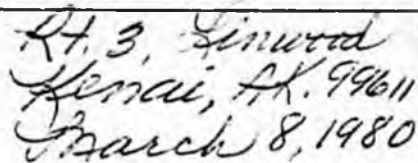 Rt. 3, Linwood
Kenai, AK. 99611
March 8, 1980